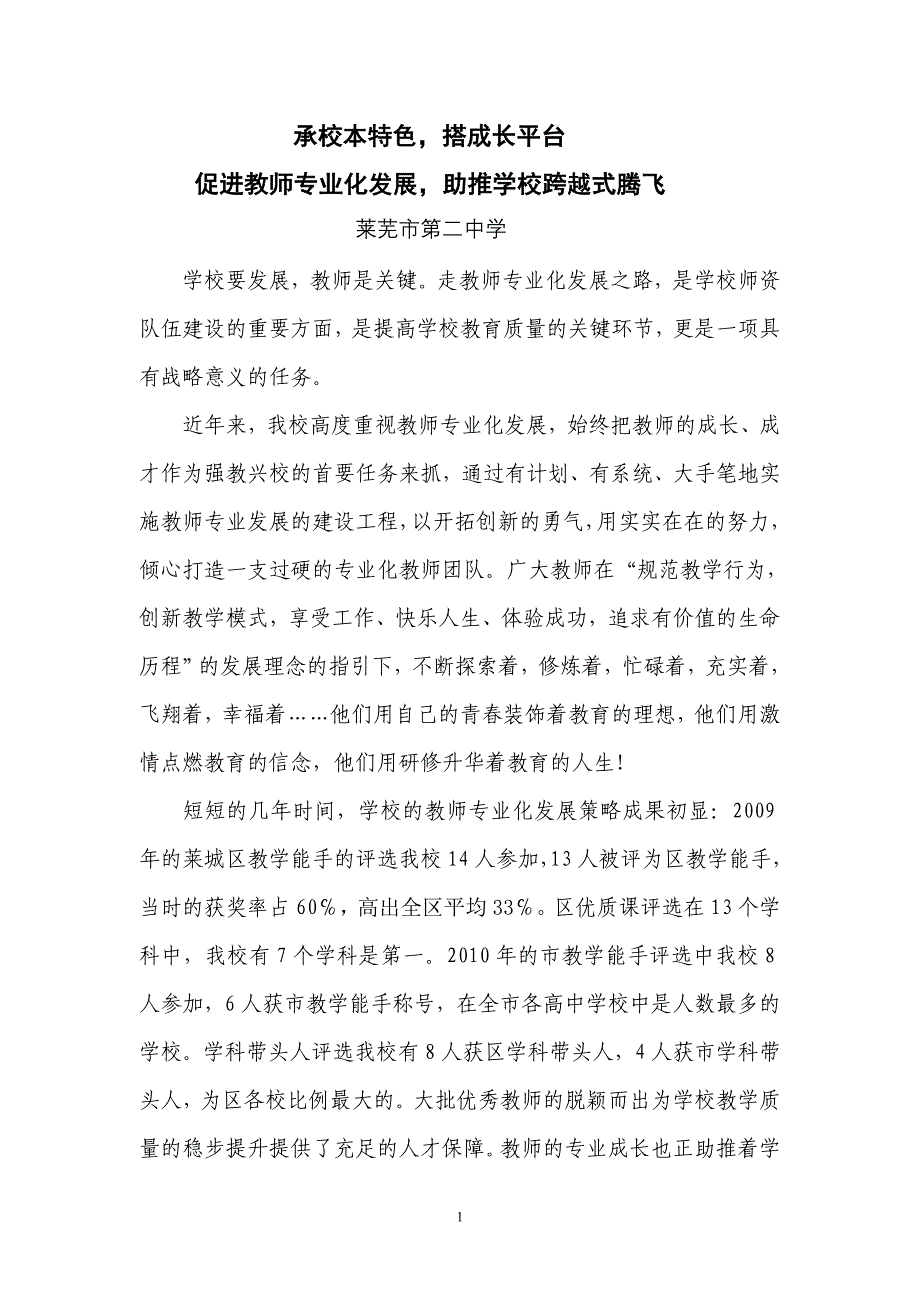 承校本特色，搭成长平台
促进教师专业化发展，助推学校跨越式腾飞
莱芜市第二中学
学校要发展，教师是关键。走教师专业化发展之路，是学校师资
队伍建设的重要方面，是提高学校教育质量的关键环节，更是一项具
有战略意义的任务。
近年来，我校高度重视教师专业化发展，始终把教师的成长、成
才作为强教兴校的首要任务来抓，通过有计划、有系统、大手笔地实
施教师专业发展的建设工程，以开拓创新的勇气，用实实在在的努力，
倾心打造一支过硬的专业化教师团队。广大教师在“规范教学行为，
创新教学模式，享受工作、快乐人生、体验成功，追求有价值的生命
历程”的发展理念的指引下，不断探索着，修炼着，忙碌着，充实着，
飞翔着，幸福着……他们用自己的青春装饰着教育的理想，他们用激
情点燃教育的信念，他们用研修升华着教育的人生！
短短的几年时间，学校的教师专业化发展策略成果初显：2009
年的莱城区教学能手的评选我校 14 人参加，13 人被评为区教学能手，
当时的获奖率占 60℅，高出全区平均 33℅。区优质课评选在 13 个学
科中，我校有 7 个学科是第一。2010 年的市教学能手评选中我校 8
人参加，6 人获市教学能手称号，在全市各高中学校中是人数最多的
学校。学科带头人评选我校有 8 人获区学科带头人，4 人获市学科带
头人，为区各校比例最大的。大批优秀教师的脱颖而出为学校教学质
量的稳步提升提供了充足的人才保障。教师的专业成长也正助推着学
1